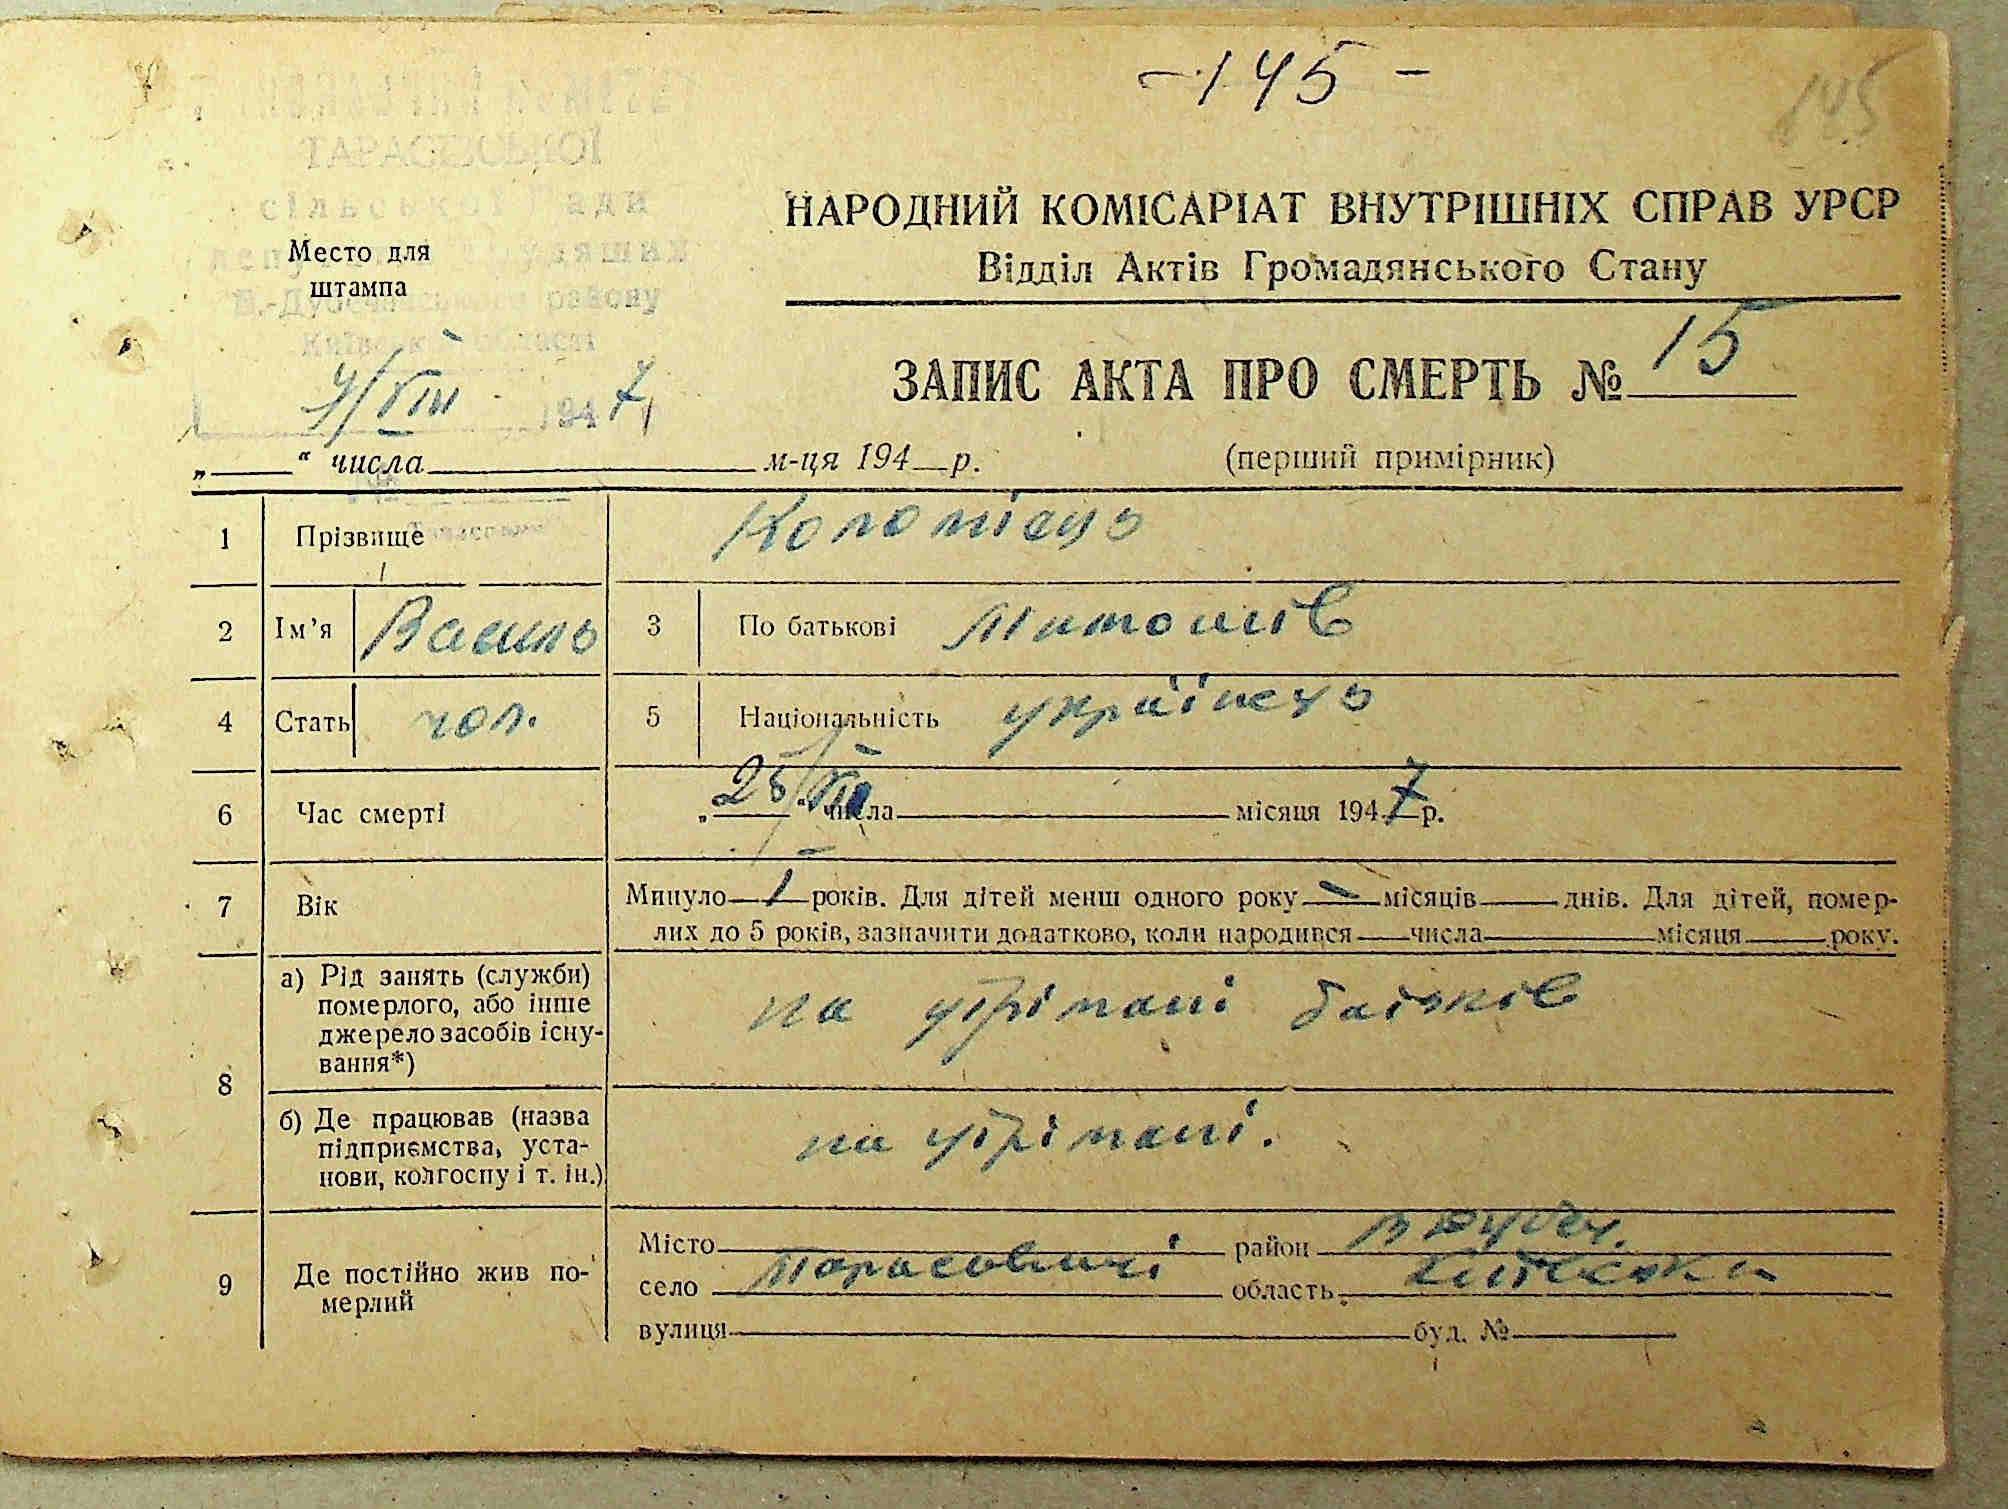 - 145 -
145
ТАРАСІВСЬКОЇ
сільської Ради
району
НАРОДНИЙ КОМІСАРІАТ ВНУТРІШНІХ СПРАВ УРСР
Відділ Актів Громадянського Стану
Место для
штампа
ЗАПИС АКТА ПРО СМЕРТЬ № 15
/VIII 1947
„ “ числа м-ця 194 р. (перший примірник)
1 Прізвище Коломієць
2 Ім’я Василь 3 По батькові
4 Стать чол. 5 Національність українець
6 Час смерті „25/VII “ числа місяця 1947 р.
7 Вік Минуло 1 років. Для дітей менш одного року – місяців днів. Для дітей, помер-
лих до 5 років, зазначити додатково, коли народився числа місяця року.
8 а) Рід занять (служби)
померлого, або інше
джерело засобів існу-
вання*)
на утрімані батьків
б) Де працював (назва
підприємства, уста-
нови, колгоспу і т. ін.)
на утрімані.
9 Де постійно жив по-
мерлий
Місто район в Дубеч.
село Тарасовичі область Київська
вулиця буд. №